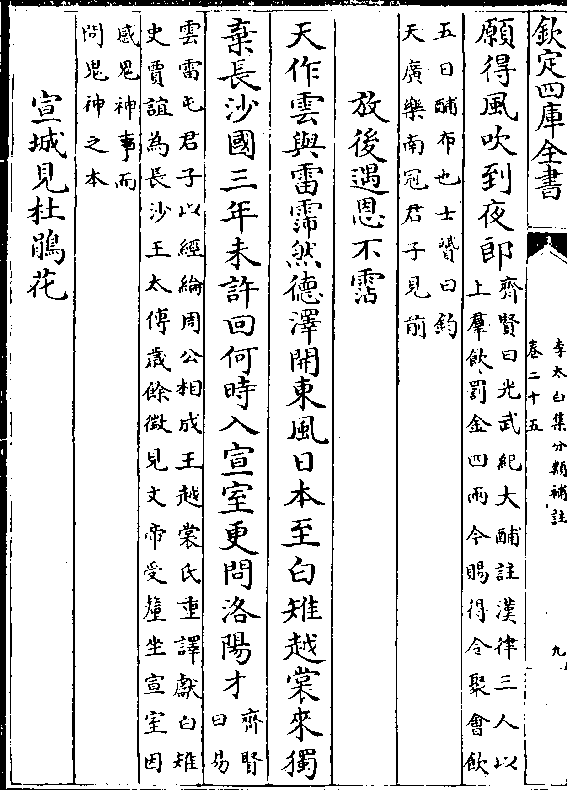 欽定四庫全書
李太白集分類補註
卷二十五
九
願得風吹到夜郎齊賢曰光武紀大酺註漢律三人以
上羣飲罰金四兩今賜得令聚會飲
五日酺布也士贇曰鈞
天廣樂南冠君子見前
放後遇恩不霑
天作雲與雷霈然德澤開東風日本至白雉越裳來獨
棄長沙國三年未許回何時入宣室更問洛陽才齊賢
曰易
雲雷屯君子以經綸周公相成王越裳氏重譯獻白雉
史賈誼為長沙王太傅歲餘徵見文帝受釐坐宣室因
感鬼神事而
問鬼神之本
宣城見杜鵑花